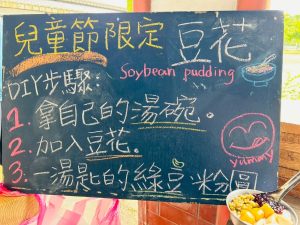 兒童節限定 豆花
Soybean pudding
DIY步驟:
1. 拿自己的湯碗.
2. 加入豆花.
3. 一湯匙的綠豆.粉圓
yummy